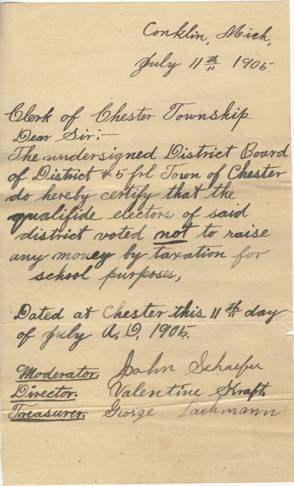 Conklin, Mich,
July 11th 1905.
Clerk of Chester Township
Dear Sir:-
The undersigned District Board
of District # 5 frl Town of Chester
do hereby certify that the
qualifide electors of said
district voted not to raise
any money by taxation for
school purposes,
Dated at Chester this 11th day
of July A.D, 1905.
Moderator. John Schaefer
Director. Valentine Kraft
Treasurer. George Lachmann